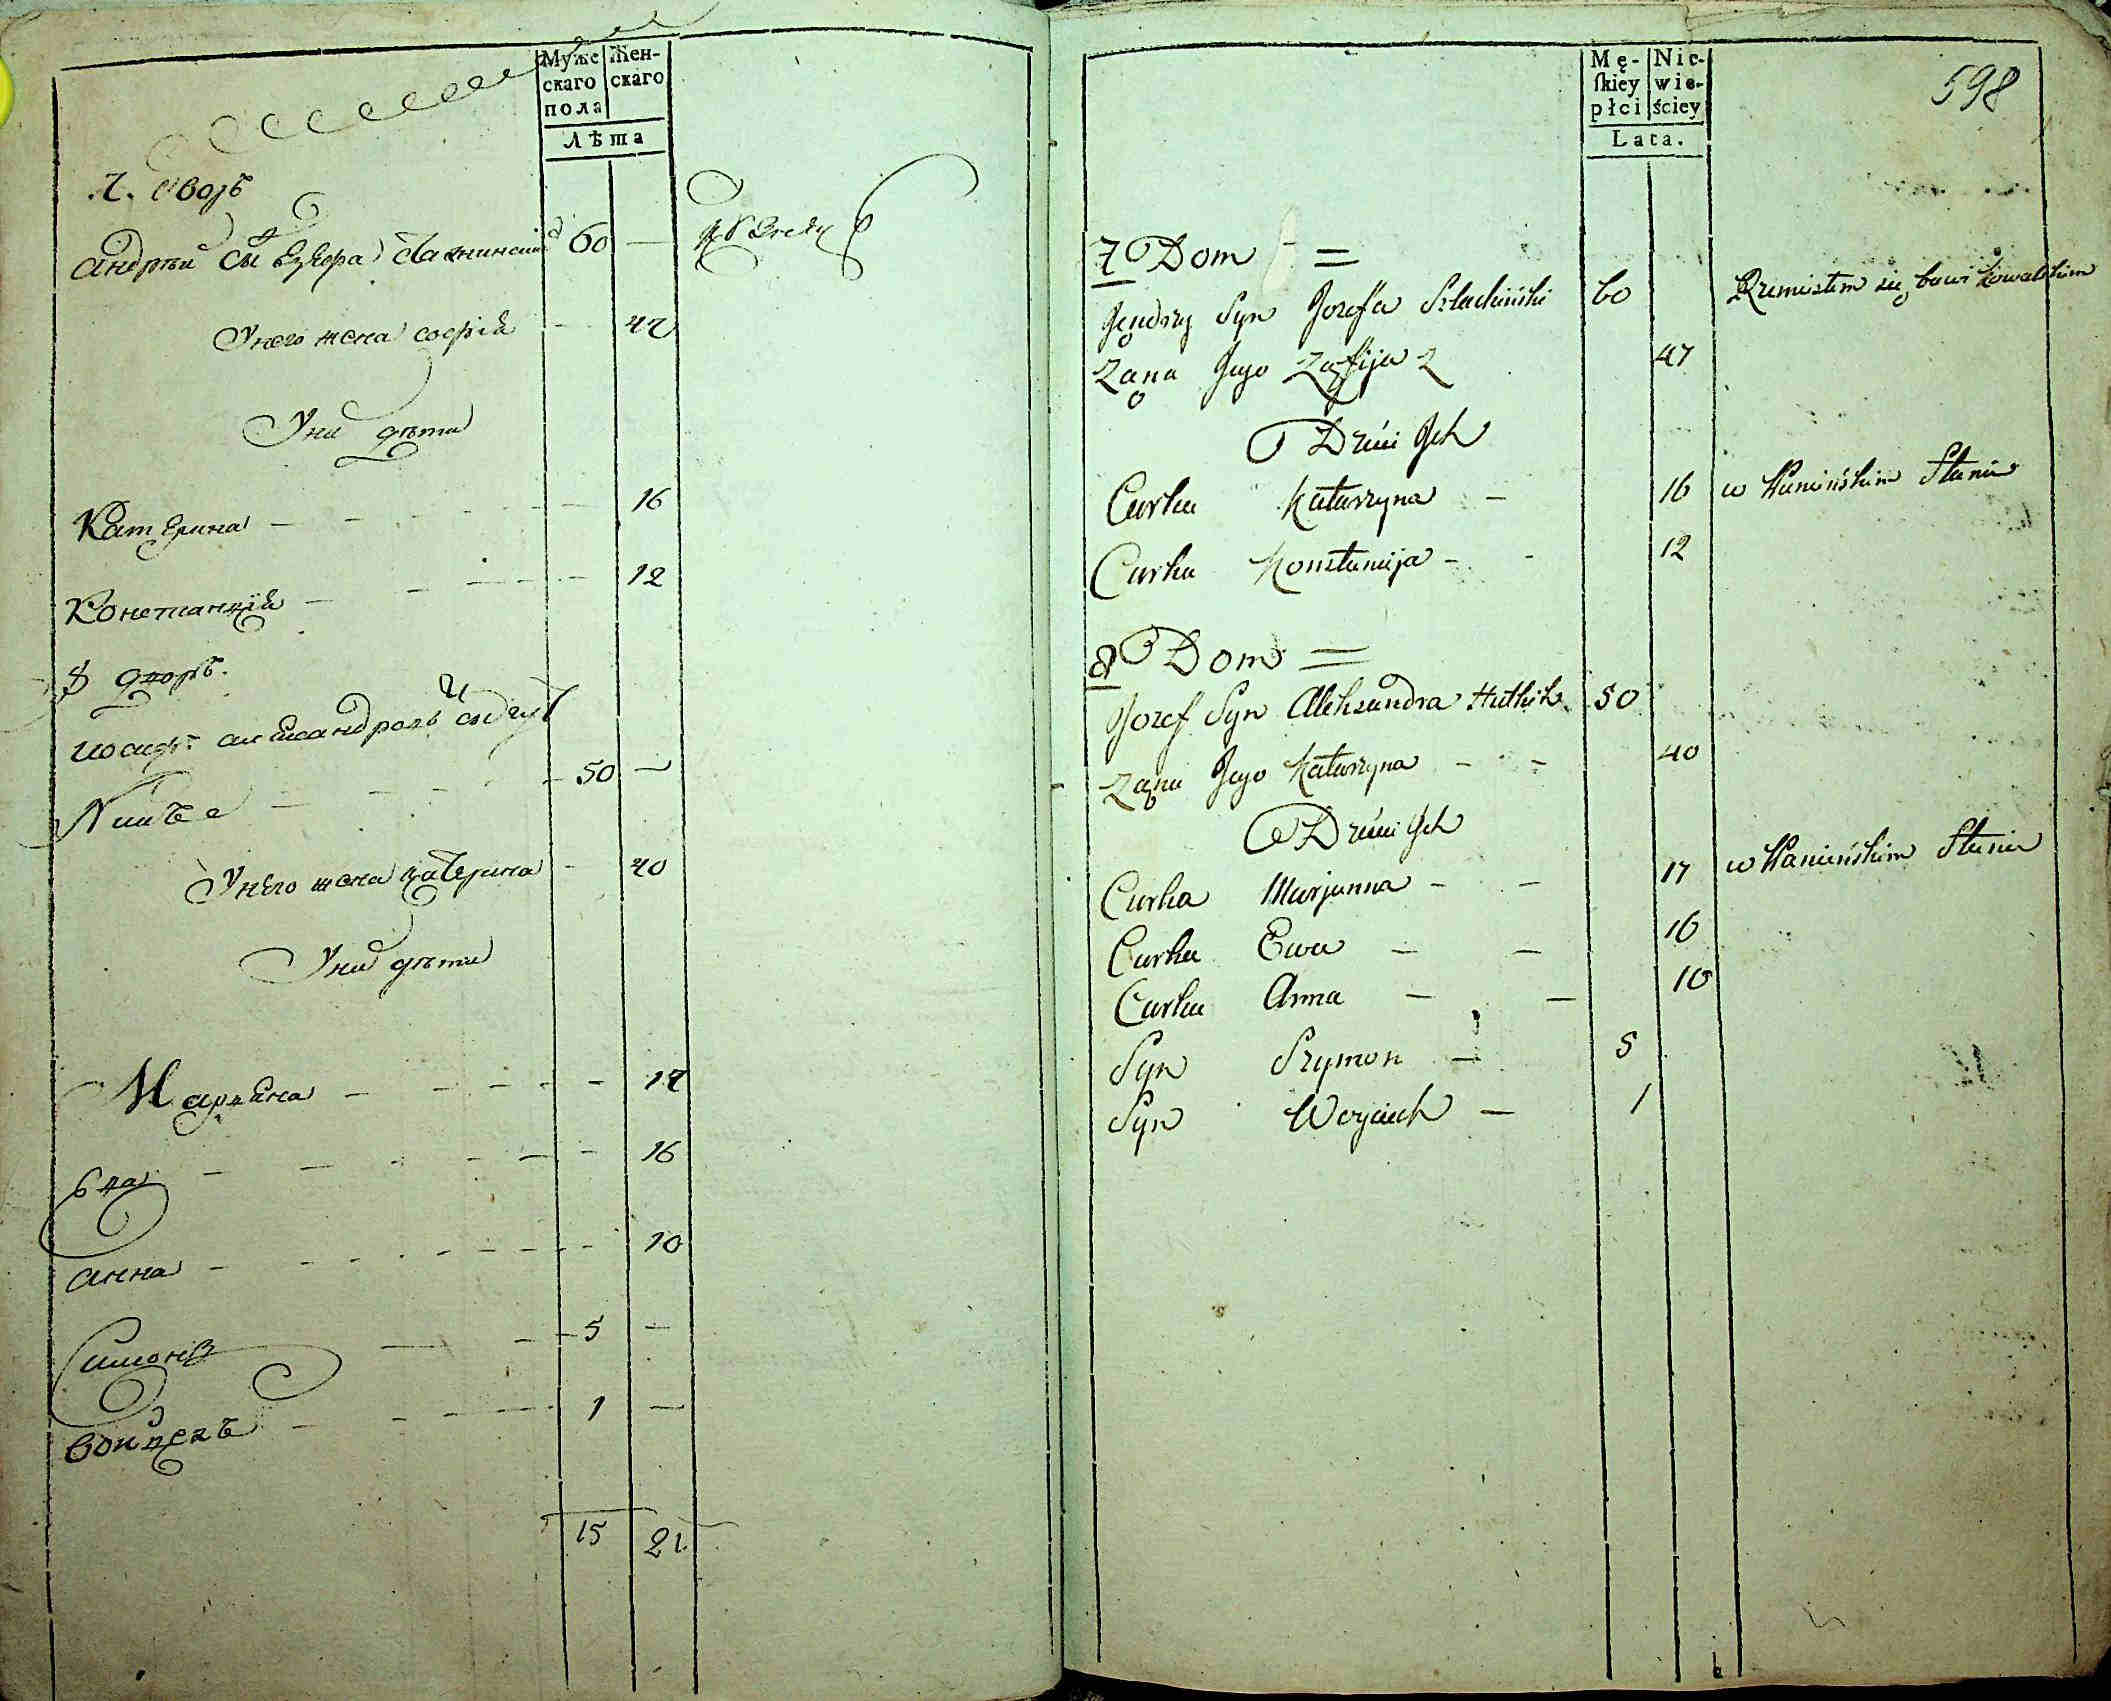 Муже
скаго
пола
Жен-
скаго
Лѣта
7. дворъ
Андрѣй Сынъ 60 —
У него жена Софія — 47
У ни дѣти
Катерина — 16
Констанція — 12
8 дворъ.
Иосифъ Александровъ Сынъ Гут
никъ — 50 —
У него жена Катерина — 40
У ни дѣти
Марцина — 17
Ева — 16
Анна — 10
Симонъ — 5 —
Войцехъ — 1 —
15 21
Mę-
skiey
płci
Nie-
wie-
ściey
Lata.
598
7 Dom =
Jędrzy Syn Jozefa Szlachiński 60 Rzemiesłem się bawi kowalskim
Zona Jego Zofija 47
Dzieci Jch
Curka Katarzyna — 16 w Kamińskim Stanie
Curka Konstancija — 12
8 Dom =
Jozef Syn Aleksandra Hutnik 50
Zona Jego Katarzyna — 40
Dzieci Jch
Curka Marjanna — 17 w Kamieńskim Stanie
Curka Ewa — 16
Curka Anna — 10
Syn Szymon — 5
Syn Woyciech — 1